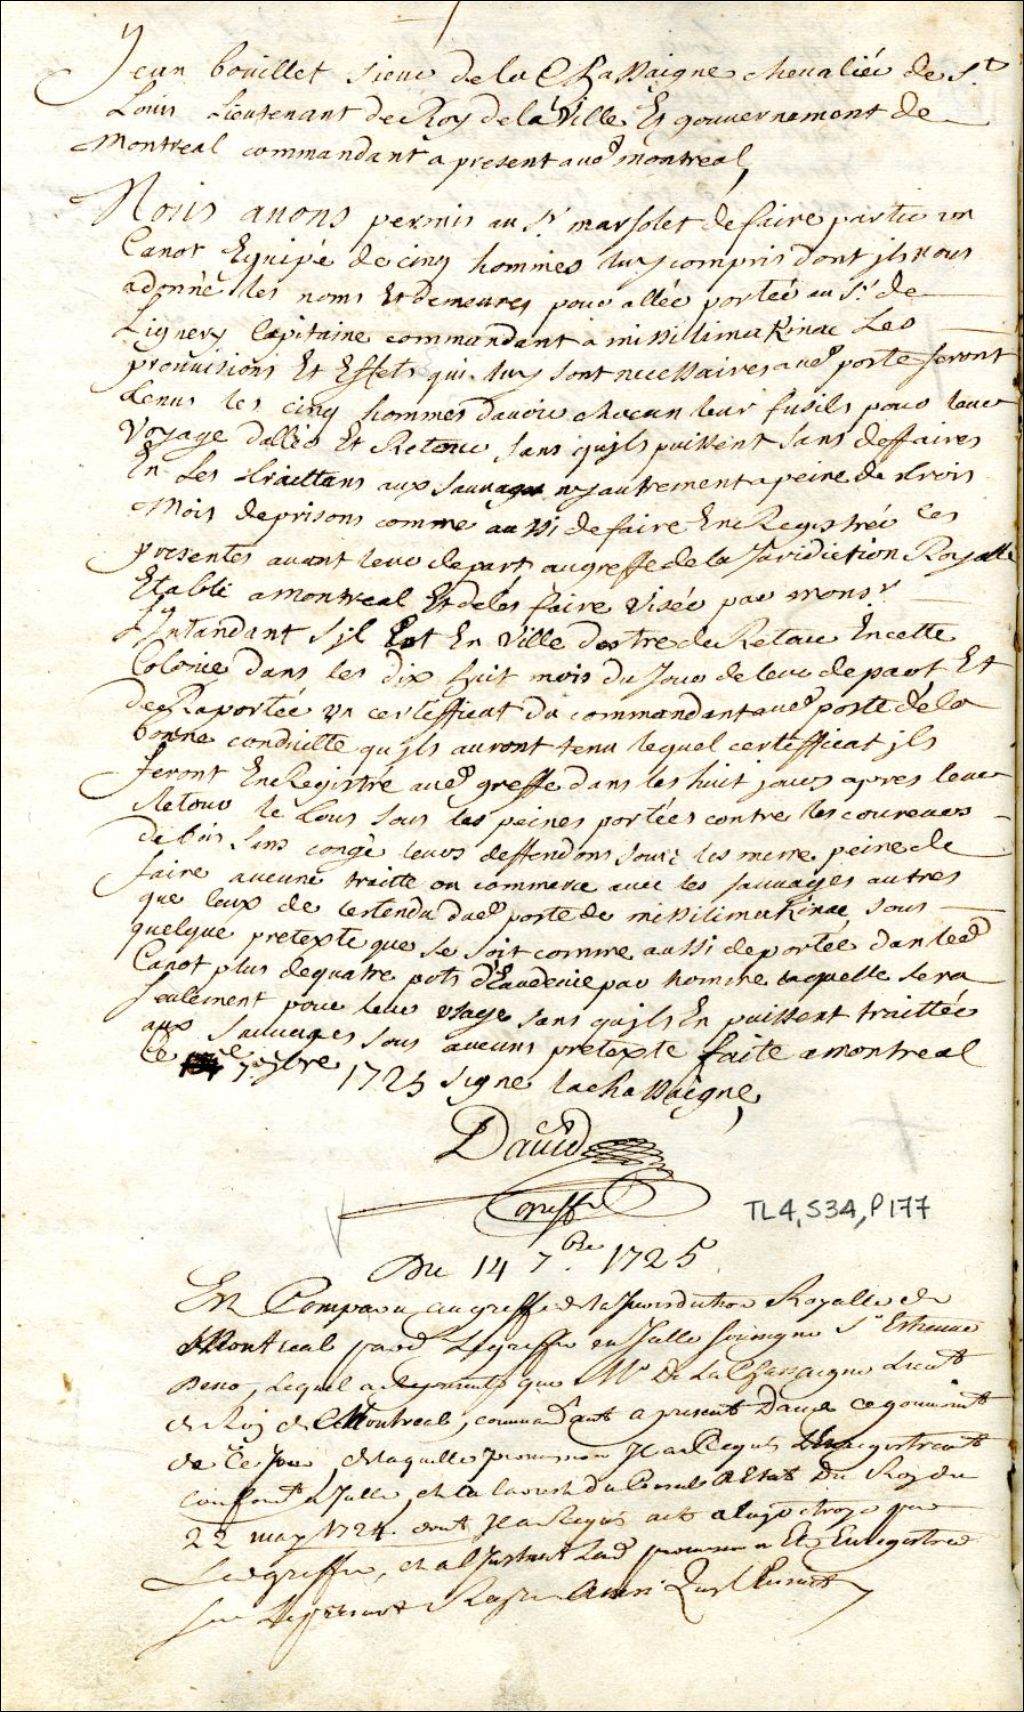 Jean bouillet sieur de la Chassaigne chevallié de St
Louis Lieutenant de Roy de la Ville Et gouvernement de
Montreal commandant a present aud montreal,
Nous avons permis au Sr. marsolet de faire partir un
Canot Equipé de cinq hommes luy compris dont jls nous
a donné les noms Et demeures pour allée portée au Sr. de
Lignery Capitaine commandant a missilimakinac Les
provuisions Et Effets qui luy sont necessaires aud poste seront
tenus les cinq hommes d'avoir chacun leur fusils pour leur
Voyage dallée Et Retour sans qujls puissent sans deffaires
En Les traittans aux sauvages ny autrement a peine de trois
Mois de prisons comme aussi de faire EnRegistrée ces
presentes avant leur depart, au greffe de la Juridiction Royalle
Etablie a Montreal Et de les faire Visée par monsr
L'Intandant Sjl Est En Ville destre de Retour En cette
Colonie dans les dix huit mois du Jour de leur depart Et
de Raportée un certifficat du commandant aud poste de la
bonne conduitte qujls auront tenu lequel certifficat jls
feront EnRegistré aud greffe dans les huit jours apres leur
Retour le tous sous les peines portées contre les coureurs
de bois sans congé leurs deffendons sous les meme peine de
faire aucune traitte ou commerce avec les sauvages autres
que ceux de lestendu dud poste de missilimakinac sous
quelque pretexte que se soit comme aussi de portée dans led
Canot plus de quatre pots d'Eaudevie par homme laquelle sera
seulement pour leur usage sans qujls En puissent traittée
aux sauvages sous aucuns pretexte faite a montreal
Ce 7e 7bre 1725 Signe lachassaigne,
David
Greffr
Du 14 7bre. 1725
TL4, S34, P177
Est Comparu au greffe de la Jurisdiction Royalle de
Montreal pard Le greffier en Jcelle soussigné Sr Estienne
, Lequel a representé que Mr De La Chassaigne Lieut
de Roy de Montreal, commandant a present Dans ce gouvernemt
de Ce Jour, de laquelle permission Jl a Requis Lenregistrement
conformt a Jcelle, et a larrest du Conseil d'Estat Du Roy du
22 may 1724. dont Jl a Requis acte a luy octroyé par
Led greffier, et a l'Jnstant Lad permission a Eté Enregistrée
sur Le present Registre Ainsi quil Ensuit